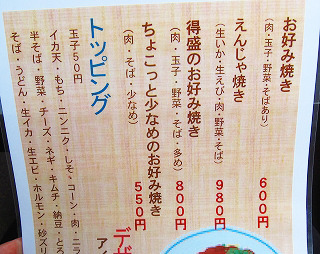 お好み焼き
(肉・玉子・野菜・そばあり)
600円
えんじゃ焼き
(生いか・生えび・肉・野菜・そば)
980円
得盛のお好み焼き
(肉・玉子・野菜・そば・多め)
800円
ちょこっと少なめのお好み焼き
(肉・そば・少なめ)
550円
トッピング
玉子50円
イカ天・もち・ニンニク・しそ・コーン・肉・ニラ
半そば・野菜・チーズ・ネギ・キムチ・納豆・とろ
そば・うどん・生イカ・生エビ・ホルモン・砂ズリ
デザ
アイ